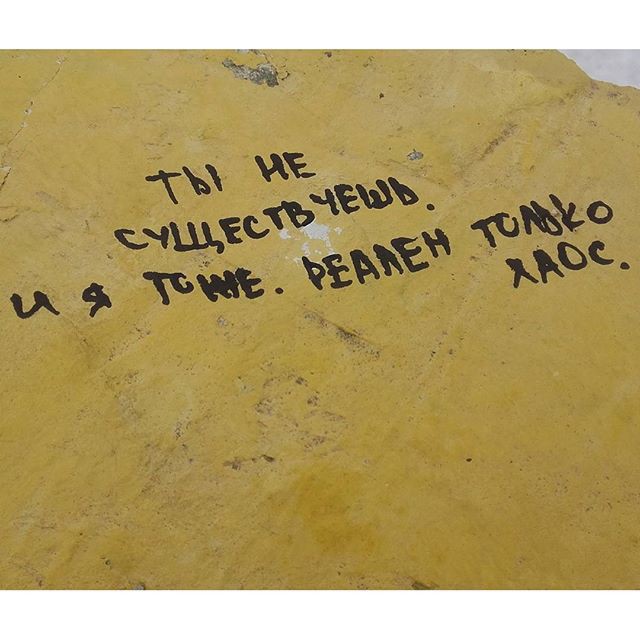 ТЫ НЕ
СУЩЕСТВУЕШЬ.
И Я ТОЖЕ. РЕАЛЕН ТОЛЬКО
ХАОС.